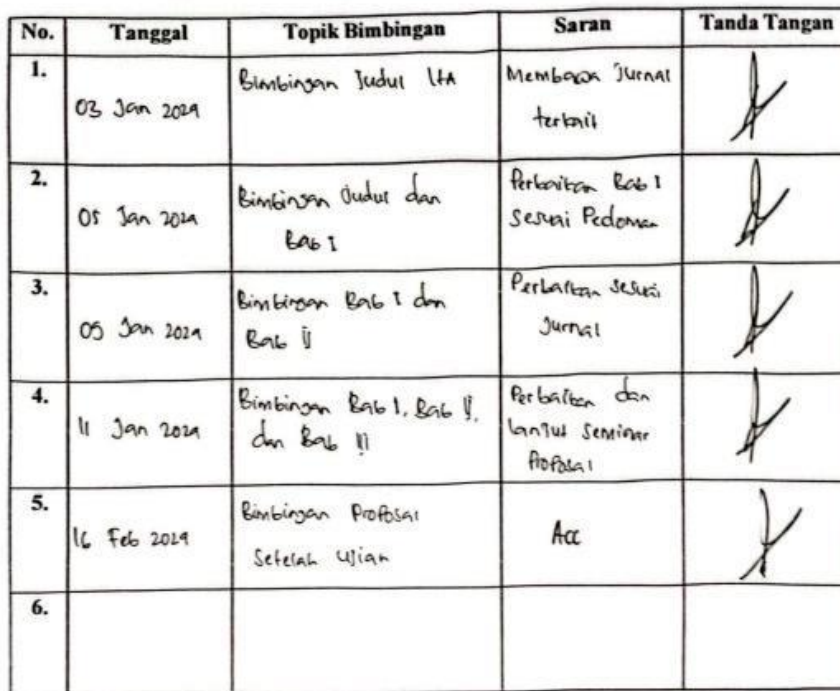 No. Tanggal Topik Bimbingan Saran Tanda Tangan
1.
03 Jan 2024
Bimbingan Judul LTA
Membawa Jurnal
terkait
2.
05 Jan 2024
Bimbingan Judul dan
Bab I
Perbaikan Bab I
Sesuai Pedoman
3.
09 Jan 2024
Bimbingan Bab I dan
Bab II
Perbaikan sesuai
Jurnal
4.
11 Jan 2024
Bimbingan Bab I, Bab II,
dan Bab III
Perbaikan dan
lanjut seminar
Proposal
5.
16 Feb 2024
Bimbingan Proposal
Setelah Ujian
Acc
6.